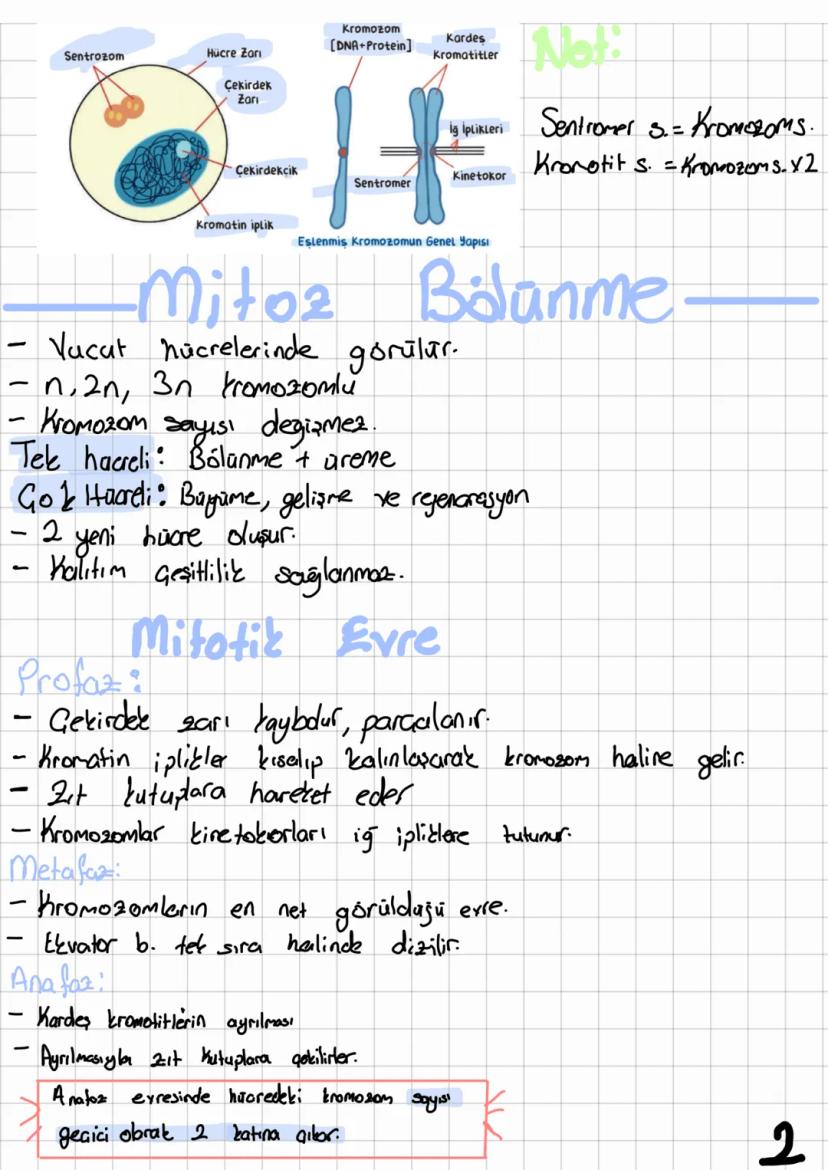 Sentrozom
Hücre Zarı
Çekirdek
Zarı
Çekirdekçik
Kromatin iplik
Kromozom
[DNA+Protein]
Kardeş
Kromatitler
İğ İplikleri
Sentromer
Kinetokor
Eşlenmiş Kromozomun Genel Yapısı
Not:
Sentromer s. = Kromozom s.
Kromotit s. = Kromozom s. x2
Mitoz Bölünme
- Vücut hücrelerinde görülür.
- n, 2n, 3n kromozomlu
- Kromozom sayısı değişmez.
Tek hücreli: Bölünme + üreme
Çok Hücreli: Büyüme, gelişme ve rejenarasyon
- 2 yeni hücre oluşur.
- Kalıtım Çeşitlilik sağlanmaz.
Mitotik Evre
Profaz:
- Çekirdek zarı kaybolur, parçalanır.
- Kromatin iplikler kısalıp kalınlaşarak kromozom haline gelir.
- Zıt kutuplara hareket eder
- Kromozomlar kinetokorları iğ ipliklere tutunur.
Metafaz:
- Kromozomların en net görüldüğü evre.
- Ekvator b. tek sıra halinde dizilir.
Anafaz:
- Kardeş kromotitlerin ayrılması
- Ayrılmasıyla zıt kutuplara çekilirler.
Anafaz evresinde hücredeki kromozom sayısı
geçici olarak 2 katına çıkar.
2